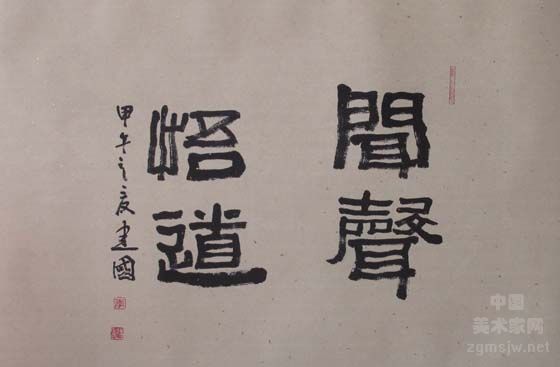 聞聲
悟道
甲午之夏建國
中国
美术家网
zgmsjw.net